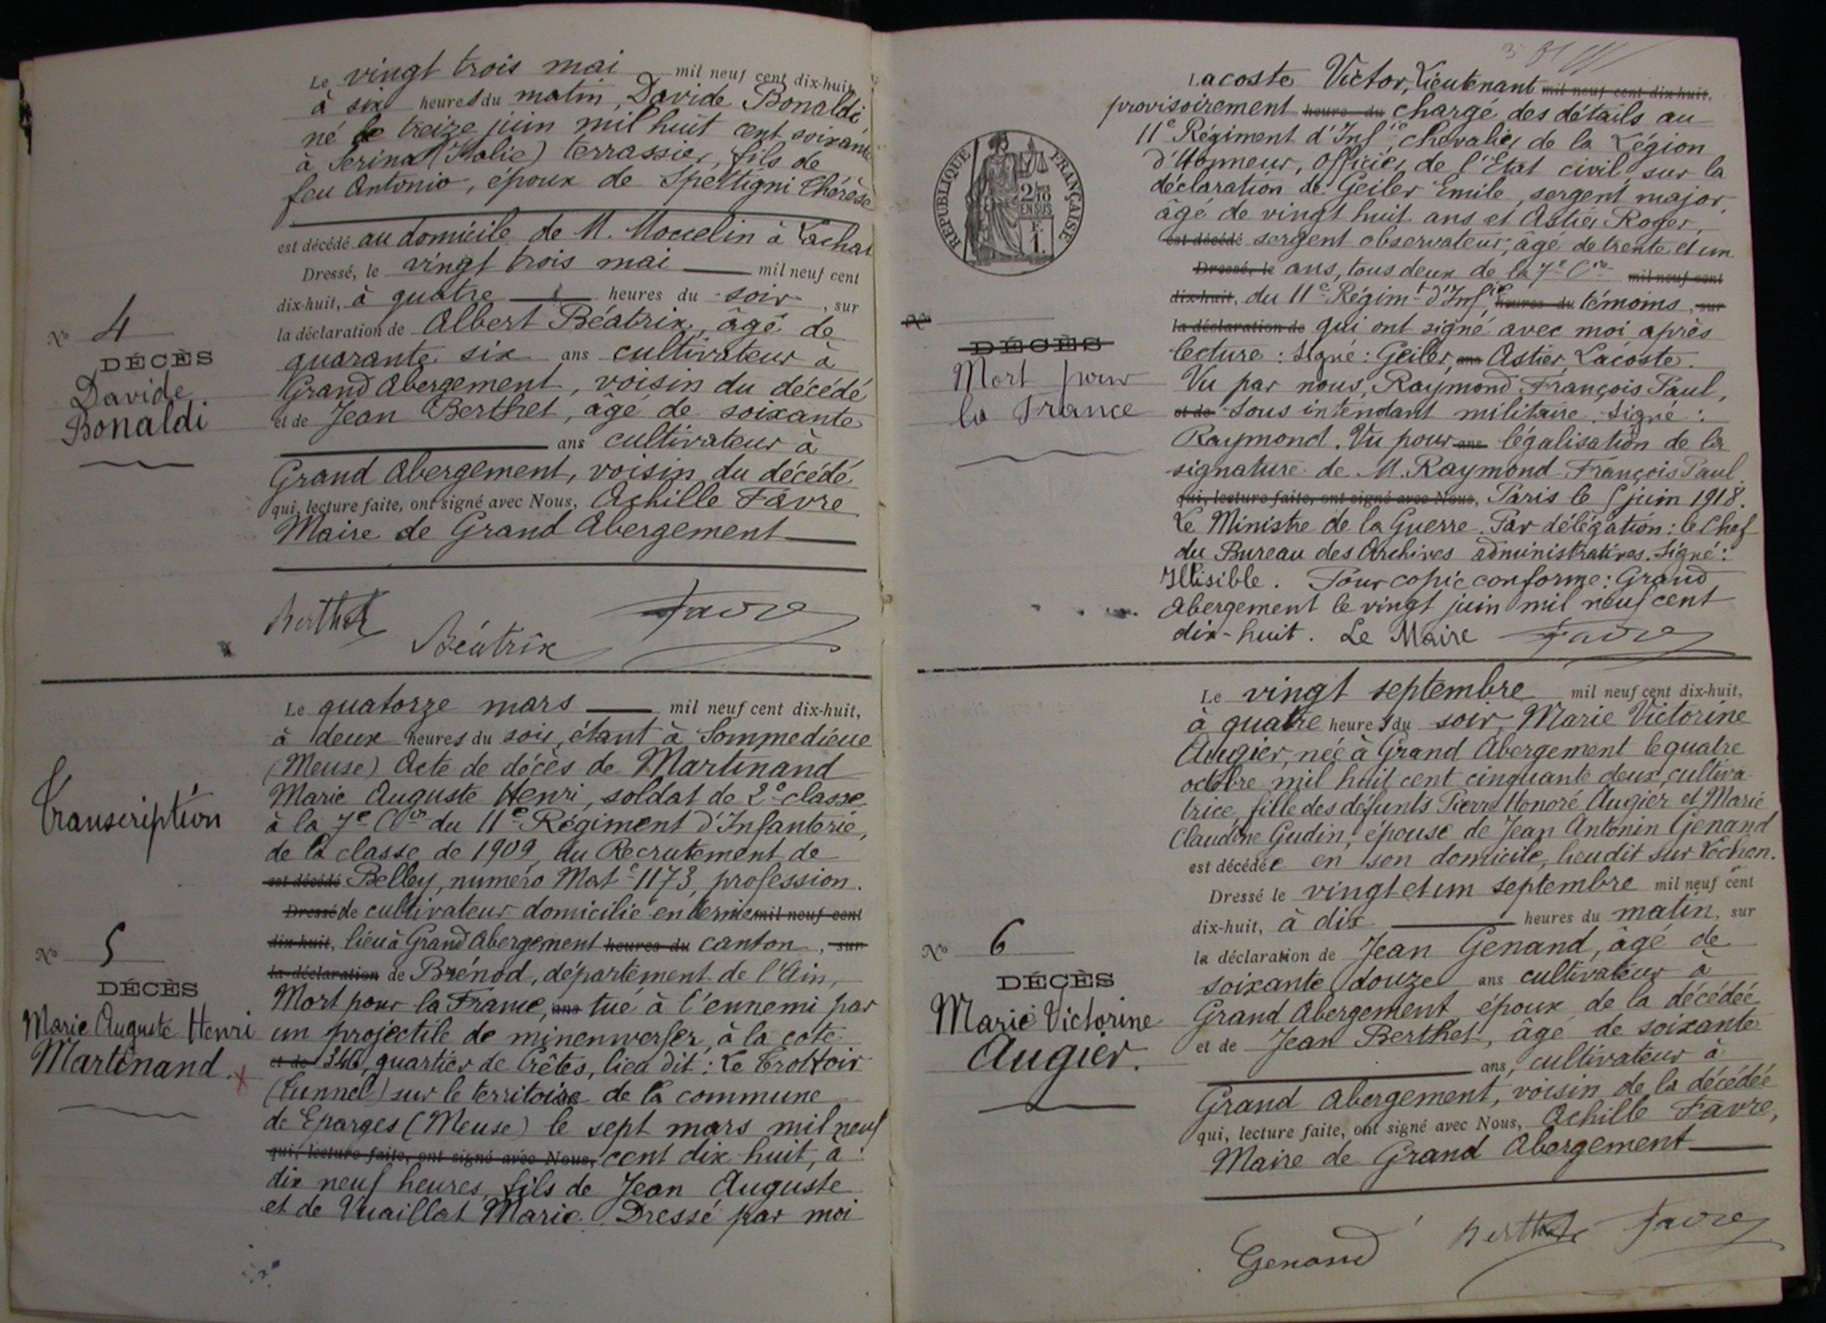 Le vingt trois mai mil neuf cent dix-huit,
à six heures du matin, Davide Bonaldi
né le treize juin mil huit cent soixante
à Serina (Italie) terrassier, fils de
feu Antonio, époux de Spettigni Thérèse
est décédé au domicile de M. Moccelin à Lachat
Dressé, le vingt trois mai mil neuf cent
dix-huit, à quatre heures du soir, sur
la déclaration de Albert Béatrix, âgé de
quarante six ans cultivateur à
Grand Abergement, voisin du décédé
et de Jean Berthet, âgé de soixante
ans cultivateur à
Grand Abergement, voisin du décédé
qui, lecture faite, ont signé avec Nous, Achille Favre
Maire de Grand Abergement
Berthet Béatrix Favre
No 4
DÉCÈS
Davide
Bonaldi
Transcription
No 5
DÉCÈS
Marie Auguste Henri
Martinand
Le quatorze mars mil neuf cent dix-huit,
à deux heures du soir, étant à Sommedieue
(Meuse) Acte de décès de Martinand
Marie Auguste Henri, soldat de 2e classe
à la 7e Cie du 11e Régiment d'Infanterie,
de la classe de 1909, du Recrutement de
est décédé Belley, numéro Mate 1173, profession
Dressé de cultivateur domicilié en dernier mil neuf cent
dix-huit, lieu à Grand Abergement heures du canton, sur
la déclaration de Brénod, département de l'Ain,
Mort pour la France, ans tué à l'ennemi par
un projectile de minenwerfer, à la cote
et de 340, quartier de Crêtes, lieu dit : Le Trottoir
(tunnel) sur le territoire de la commune
de Eparges (Meuse) le sept mars mil neuf
qui, lecture faite, ont signé avec Nous, cent dix huit, à
dix neuf heures, fils de Jean Auguste
et de Vuaillat Marie. Dressé par moi
RÉPUBLIQUE FRANÇAISE
2/10
EN SUS
1F.
Lacoste Victor, Lieutenant mil neuf cent dix-huit,
provisoirement heure du chargé des détails au
11e Régiment d'Infie, Chevalier de la Légion
d'Honneur, Officier de l'Etat civil sur la
déclaration de Geiler Emile, sergent major,
âgé de vingt huit ans et Astier Roger,
est décédé sergent observateur, âgé de trente et un
Dressé, le ans, tous deux de la 7e Cie mil neuf cent
dix-huit, du 11e Régimt d'Infie, heures du témoins, sur
la déclaration de qui ont signé avec moi après
lecture : Signé : Geiler, ans Astier, Lacoste.
Vu par nous, Raymond François Paul,
et de Sous intendant militaire. Signé :
Raymond. Vu pour ans légalisation de la
signature de M. Raymond François Paul
qui, lecture faite, ont signé avec Nous, Paris le 5 juin 1918.
Le Ministre de la Guerre. Par délégation : le Chef
du Bureau des Archives administratives. Signé :
Illisible. Pour copie conforme : Grand
Abergement le vingt juin mil neuf cent
dix-huit. Le Maire Favre
No
DÉCÈS
Mort pour
la France
Le vingt septembre mil neuf cent dix-huit,
à quatre heures du soir, Marie Victorine
Augier, née à Grand Abergement le quatre
octobre mil huit cent cinquante deux, cultiva-
trice, fille des défunts Pierre Honoré Augier et Marie
Claudine Gudin, épouse de Jean Antonin Genand
est décédée en son domicile, lieudit sur Lochon.
Dressé le vingt et un septembre mil neuf cent
dix-huit, à dix heures du matin, sur
la déclaration de Jean Genand, âgé de
soixante douze ans cultivateur à
Grand Abergement époux de la décédée
et de Jean Berthet, âgé de soixante
ans, cultivateur à
Grand Abergement, voisin de la décédée
qui, lecture faite, ont signé avec Nous, Achille Favre,
Maire de Grand Abergement
Genand Berthet Favre
No 6
DÉCÈS
Marie Victorine
Augier.